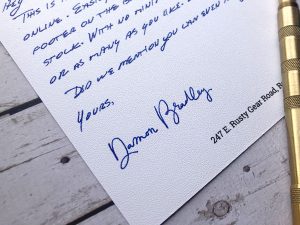 THIS IS
ONLINE. EASIL
FOOTER ON THE B
STOCK. WITH NO MINI
OR AS MANY AS YOU LIKE.
DID WE MENTION YOU CAN EVEN
YOURS,
Damon Bradley
247 E. Rusty Gear Road, R